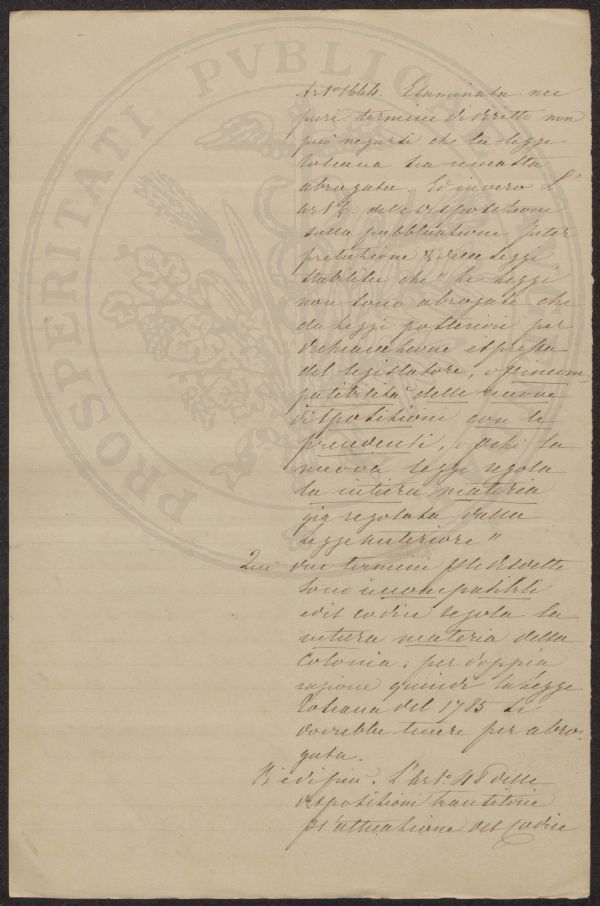 Art.° 1664. Esaminata nei
puri termini di diritto non
può negarsi che la legge
Toscana sia rimasta
abrogata. Ed invero L'
Art. 5. delle disposizioni
sulla pubblicazione, Inter
pretazione & delle leggi
stabilita che "Le Leggi
non sono abrogate che
da leggi posteriori per
dichiarazione espressa
del legislatore, o p incom-
patibilità delle nuove
disposizioni con le
precedenti, o pchè la
nuova legge regola
la intiera materia
già regolata dalla
legge anteriore"
Qui due termini le disdette
sono incompatibili
ed il codice regola la
intiera materia della
Colonia; per doppia
ragione quindi la legge
Toscana del 1785 si
dovrebbe tenere per abro-
gata.
di più. L'Art.° 48 delle
disposizioni transitorie
p l'attuazione del Codice
PROSPERITATI PVBLICAE